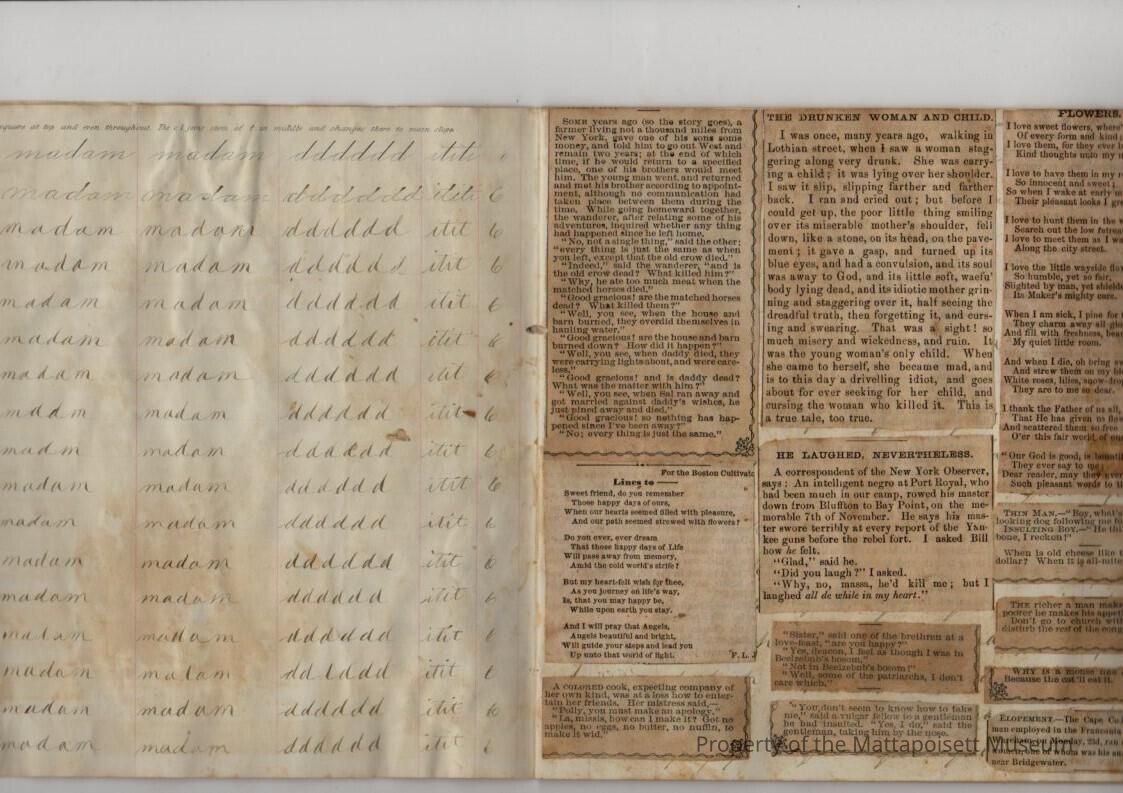 square at top and even throughout.
madam madam dddddd itit
madam madam dddddd itit 6
madam madam dddddd itit 6
madam madam dddddd itit 6
madam madam dddddd itit 6
madam madam dddddd itit 6
madam madam dddddd itit 6
madm madam dddddd itit 6
madm madam dddddd itit 6
madam madam dddddd itit 6
madam madam dddddd itit 6
madam madam dddddd itit 6
madam madam dddddd itit 6
madam madam dddddd itit 6
madam madam dddddd itit 6
madam madam dddddd itit 6
madam madam dddddd itit 6
SOME years ago (so the story goes), a
farmer living not a thousand miles from
New York, gave one of his sons some
money, and told him to go out West and
remain two years; at the end of which
time, if he would return to a specified
place, one of his brothers would meet
him. The young man went and returned
and met his brother according to appoint-
ment, although no communication had
taken place between them during the
time. While going homeward together,
the wanderer, after relating some of his
adventures, inquired whether any thing
had happened since he left home.
"No, not a single thing," said the other;
"every thing is just the same as when
you left, except that the old crow died."
"Indeed," said the wanderer, "and is
the old crow dead? What killed him?"
"Why, he ate too much meat when the
matched horses died."
"Good gracious! are the matched horses
dead? What killed them?"
"Well, you see, when the house and
barn burned, they overdid themselves in
hauling water."
"Good gracious! are the house and barn
burned down? How did it happen?"
"Well, you see, when daddy died, they
were carrying lights about, and were care-
less."
"Good gracious! and is daddy dead?
What was the matter with him?"
"Well, you see, when Sal ran away and
got married against daddy's wishes, he
just pined away and died."
"Good gracious! so nothing has hap-
pened since I've been away?"
"No; every thing is just the same."
For the Boston Cultivato
Lines to ——
Sweet friend, do you remember
Those happy days of ours,
When our hearts seemed filled with pleasure,
And our path seemed strewed with flowers?
Do you ever, ever dream
That those happy days of Life
Will pass away from memory,
Amid the cold world's strife?
But my heart-felt wish for thee,
As you journey on life's way,
Is, that you may be happy,
While upon earth you stay.
And I will pray that Angels,
Angels beautiful and bright,
Will guide your steps and lead you
Up unto that world of light. F. L. J
A COLORED cook, expecting company of
her own kind, was at a loss how to enter-
tain her friends. Her mistress said,—
"Polly, you must make an apology."
"La, missis, how can I make it? Got no
apples, no eggs, no butter, no nuffin, to
make it wid."
THE DRUNKEN WOMAN AND CHILD.
I was once, many years ago, walking in
Lothian street, when I saw a woman stag-
gering along very drunk. She was carry-
ing a child; it was lying over her shoulder.
I saw it slip, slipping farther and farther
back. I ran and cried out; but before I
could get up, the poor little thing smiling
over its miserable mother's shoulder, fell
down, like a stone, on its head, on the pave-
ment; it gave a gasp, and turned up its
blue eyes, and had a convulsion, and its soul
was away to God, and its little soft, waefu'
body lying dead, and its idiotic mother grin-
ning and staggering over it, half seeing the
dreadful truth, then forgetting it, and curs-
ing and swearing. That was a sight! so
much misery and wickedness, and ruin. It
was the young woman's only child. When
she came to herself, she became mad, and
is to this day a drivelling idiot, and goes
about for ever seeking for her child, and
cursing the woman who killed it. This is
a true tale, too true.
HE LAUGHED, NEVERTHELESS.
A correspondent of the New York Observer,
says: An intelligent negro at Port Royal, who
had been much in our camp, rowed his master
down from Bluffton to Bay Point, on the me-
morable 7th of November. He says his mas-
ter swore terribly at every report of the Yan-
kee guns before the rebel fort. I asked Bill
how he felt.
"Glad," said he.
"Did you laugh?" I asked.
"Why, no, massa, he'd kill me; but I
laughed all de while in my heart."
"Sister," said one of the brethren at a
love-feast, "are you happy?"
"Yes, deacon, I feel as though I was in
Beelzebub's bosom."
"Not in Beelzebub's bosom!"
"Well, some of the patriarchs, I don't
care which."
"You don't seem to know how to take
me," said a vulgar fellow to a gentleman
he had insulted. "Yes, I do," said the
gentleman, taking him by the nose.
FLOWERS.
I love sweet flowers, where'
Of every form and kind
I love them, for they ever
Kind thoughts unto my
I love to have them in my
So innocent and sweet;
So when I wake at early
Their pleasant looks I
I love to hunt them in the
Search out the low
I love to meet them as I
Along the city street.
I love the little wayside
So humble, yet so fair,
Slighted by man, yet
Its Maker's mighty care.
When I am sick, I pine for
They charm away all
And fill with freshness,
My quiet little room.
And when I die, oh bring
And strew them on my
White roses, lilies,
They are to me so dear.
I thank the Father of us all,
That He has given
And scattered them so free
O'er this fair world of
"Our God is good, is
They ever say to
Dear reader, may they
Such pleasant words to
THIN MAN.—"Boy, what's
looking dog following me
INSULTING BOY.—"He
bone, I reckon!"
When is old cheese like
dollar? When it is
THE richer a man
poorer he makes his
Don't go to church
disturb the rest of the
WHY is a mouse
Because the cat'll eat it.
ELOPEMENT.—The Cape
man employed in the Franconia
Monday, 23d, ran
one of whom was his
near Bridgewater.
Property of the Mattapoisett Museum